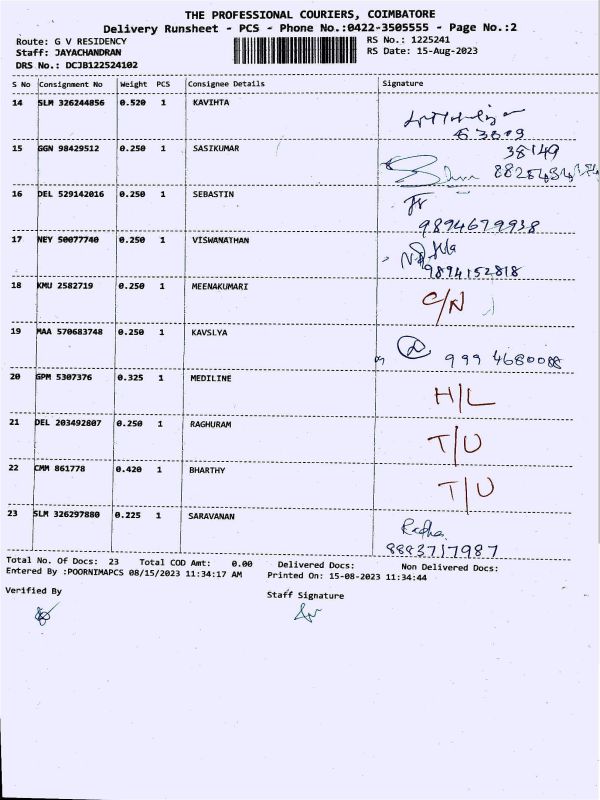 THE PROFESSIONAL COURIERS, COIMBATORE
Delivery Runsheet - PCS - Phone No.:0422-3505555 - Page No.:2
Route: G V RESIDENCY RS No.: 1225241
Staff: JAYACHANDRAN RS Date: 15-Aug-2023
DRS No.: DCJB122524102
S No Consignment No Weight PCS Consignee Details Signature
14 SLM 326244856 0.520 1 KAVIHTA
63809
15 GGN 98429512 0.250 1 SASIKUMAR 38149
16 DEL 529142016 0.250 1 SEBASTIN
9894679938
17 NEY 50077740 0.250 1 VISWANATHAN
9894152818
18 KMU 2582719 0.250 1 MEENAKUMARI C/N
19 MAA 570683748 0.250 1 KAVSLYA
999 4680088
20 GPM 5307376 0.325 1 MEDILINE H/L
21 DEL 203492807 0.250 1 RAGHURAM T/U
22 CMM 861778 0.420 1 BHARTHY T/U
23 SLM 326297880 0.225 1 SARAVANAN Radha
9883717987
Total No. Of Docs: 23 Total COD Amt: 0.00 Delivered Docs: Non Delivered Docs:
Entered By :POORNIMAPCS 08/15/2023 11:34:17 AM Printed On: 15-08-2023 11:34:44
Verified By Staff Signature